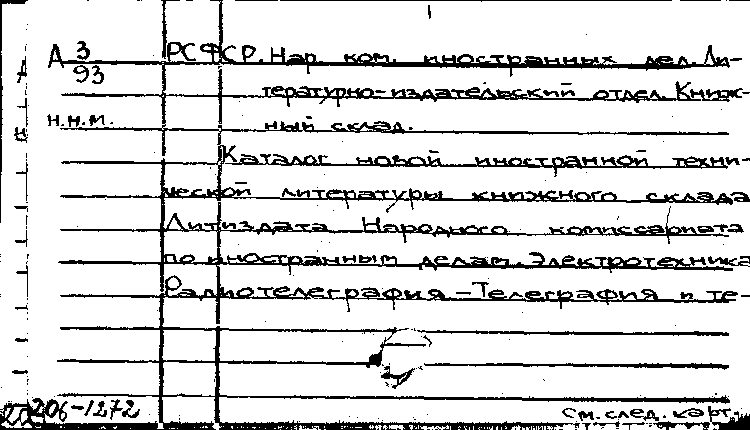 А 3/93 РСФСР. Нар. ком. иностранных дел. Ли-
тературно-издательский отдел. Книж-
н.н.м. ный склад.
Каталог новой иностранной техни-
ческой литературы книжного склада
Литиздата Народного комиссариата
по иностранным делам. Электротехника
Радиотелеграфия - Телеграфия и те-
206-1272 См. след. карт.